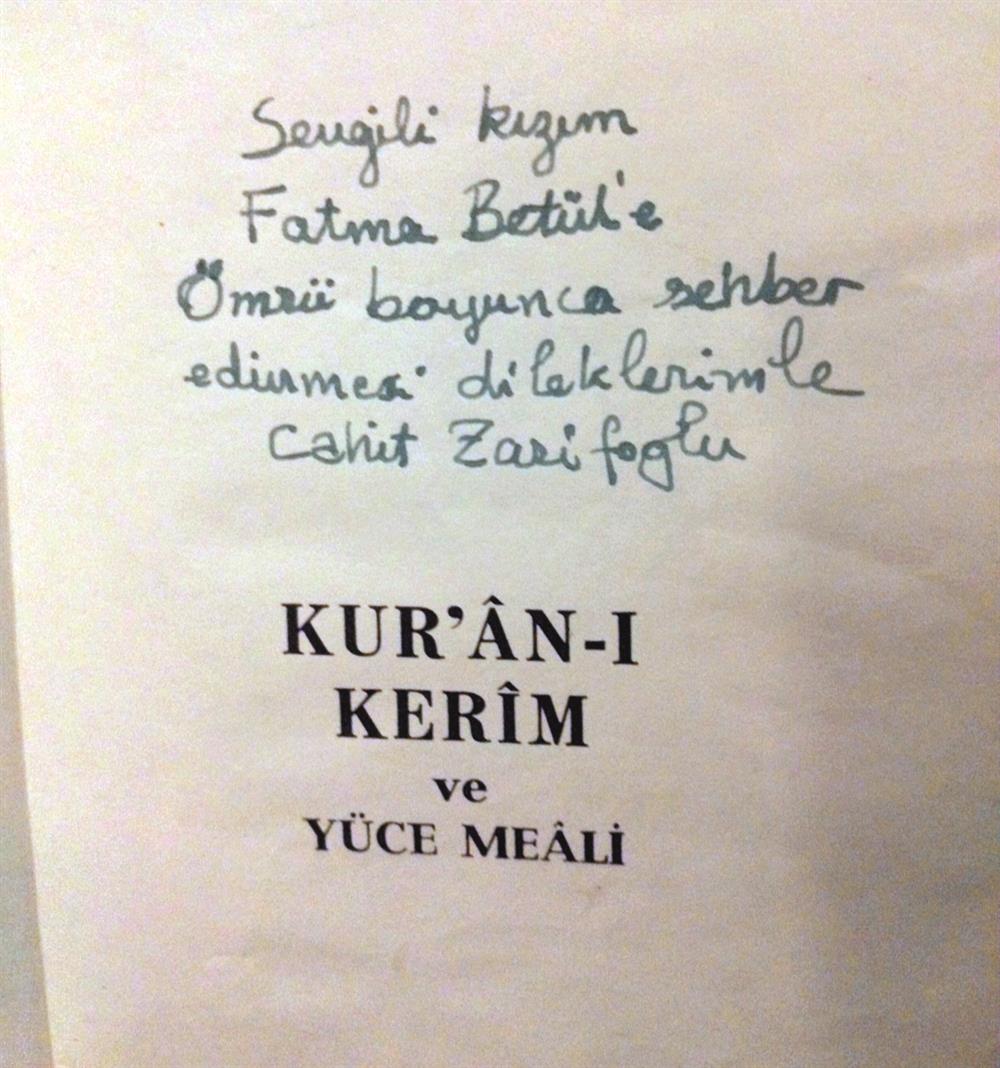 Sevgili kızım
Fatma Betül'e
Ömrü boyunca rehber
edinmesi dileklerimle
Cahit Zarifoğlu
KUR'ÂN-I
KERÎM
ve
YÜCE MEÂLİ